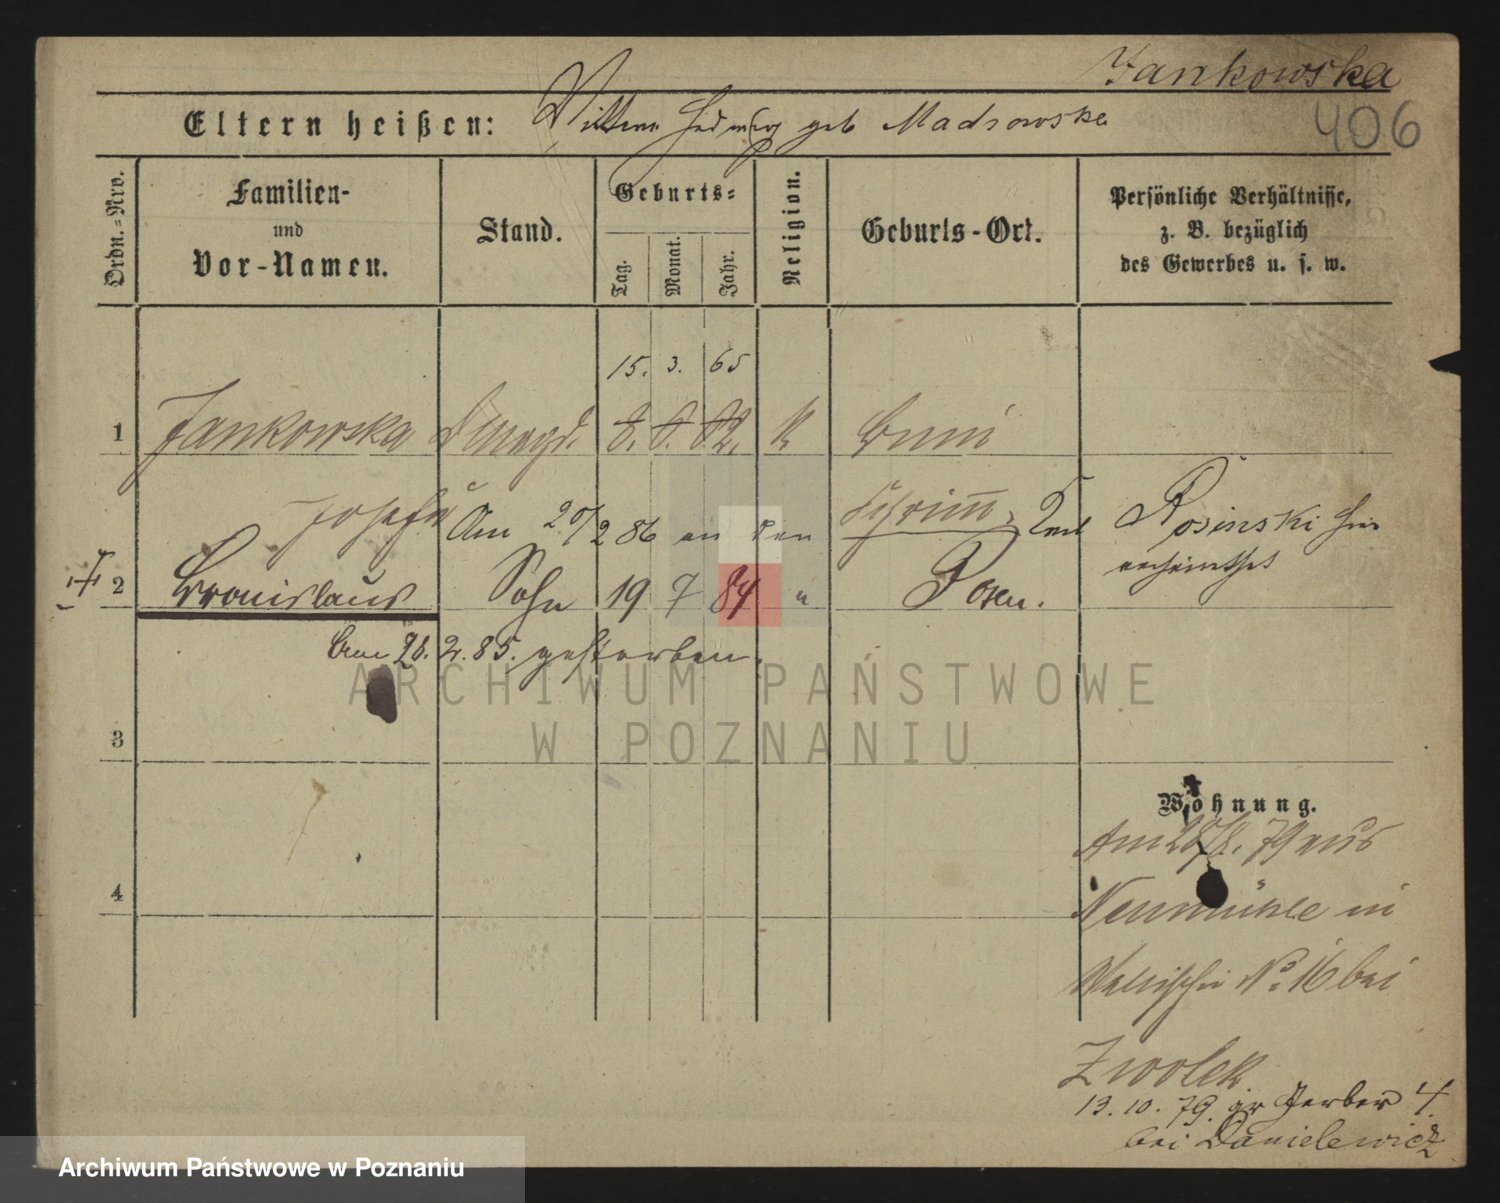 Jankowska
406
Eltern heißen: Hedwig geb Madrowska
Ordn.-Nro.
Familien-
und
Vor-Namen.
Stand.
Geburts-
Tag.
Monat.
Jahr.
Religion.
Geburts-Ort.
Persönliche Verhältnisse,
z. B. bezüglich
des Gewerbes u. s. w.
15. 3. 65
1 Jankowska Magd. 8. 8. 82. K
Josefa Am 20/2 86 an den Schrimm, Rosinski hier
verheirathet
2 Bronislaus Sohn 19 7 84 " Posen.
Am 26. 2. 85. gestorben.
ARCHIWUM PAŃSTWOWE
W POZNANIU
3
Wohnung.
Am 79 aus
4
Neumühle in
Wallischei No 16 bei
Zwolek
13. 10. 79. gr Gerber 4.
bei Danielewicz
Archiwum Państwowe w Poznaniu